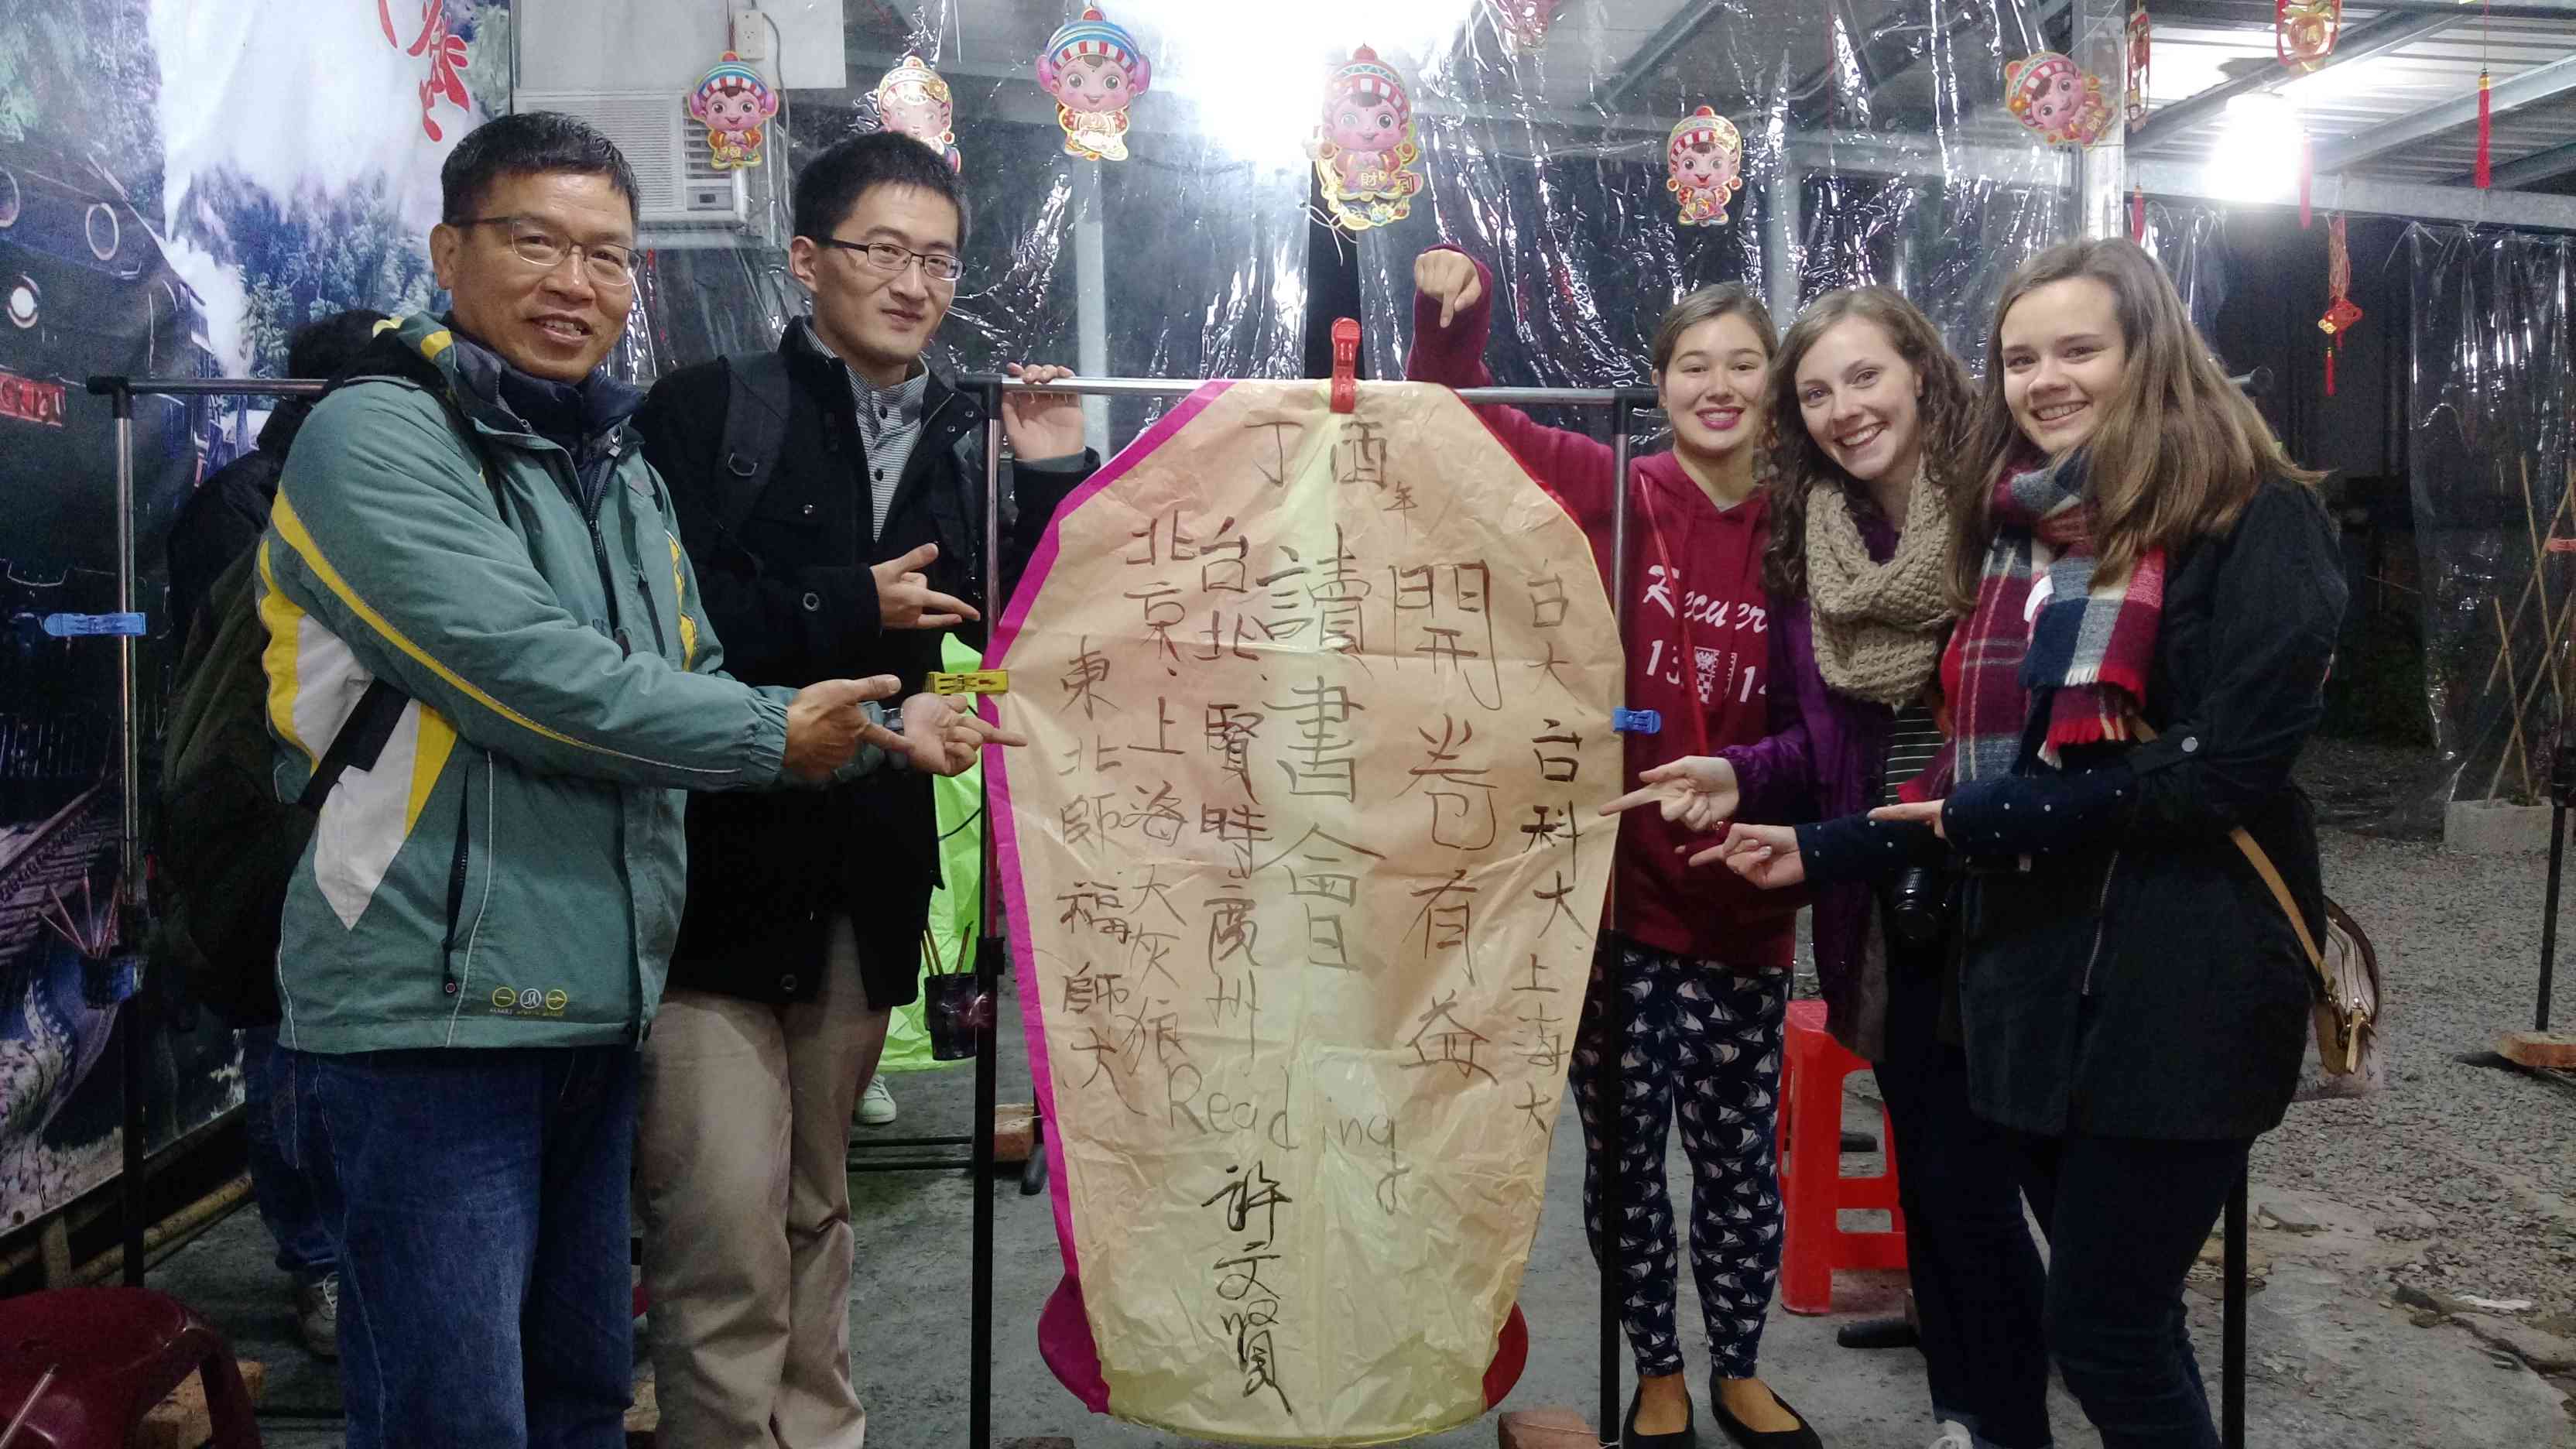 丁酉年
台大、台科大、上海大
開卷有益
讀書會
台北、賢時廣州
北京、上海大灰狼
東北師、福師大
Reading
許文賢
Recuer
13 14
財